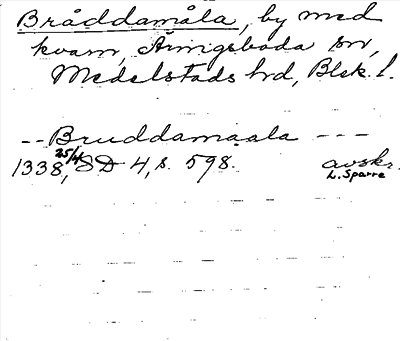 Bråddamåla, by med
kvarn, Åryngsboda sn,
Medelstads hrd, Blek. l.
-- Bruddamaala ---
1338, 25/4 SD 4, s. 598. avskr.
L. Sparre